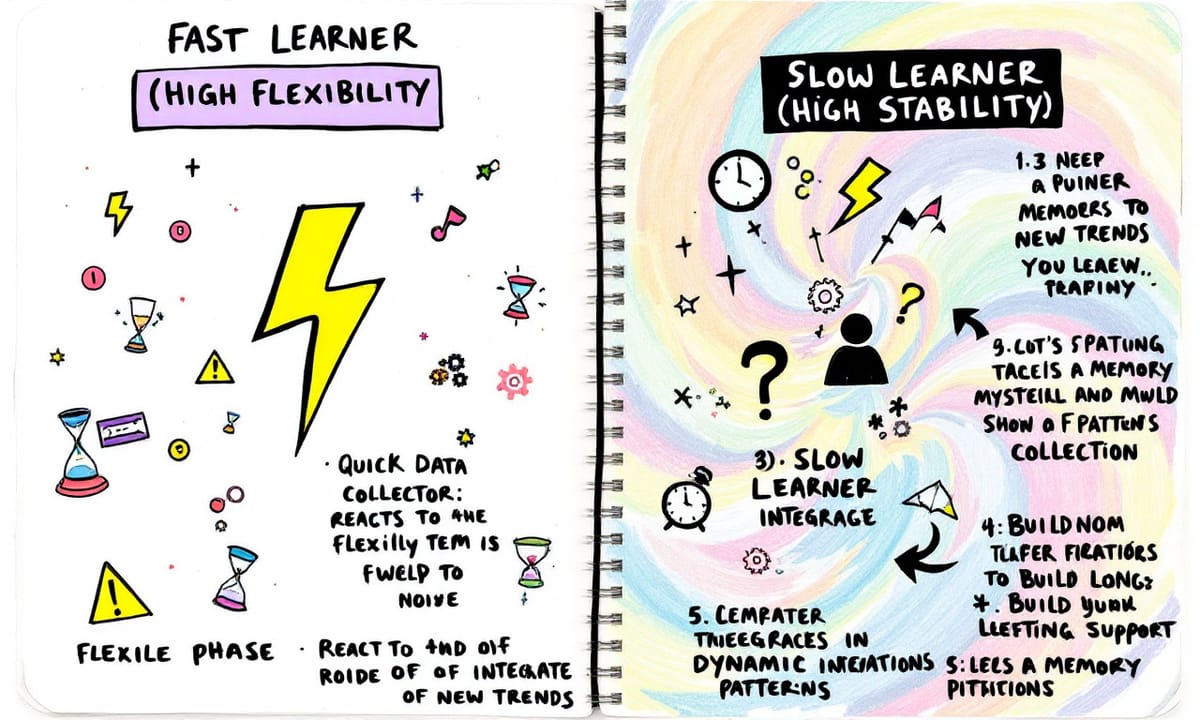 FAST LEARNER
(HIGH FLEXIBILITY
· QUICK DATA
COLLECTOR:
REACTS TO THE
FLEXILLY TEM IS
FWELD TO
NOISE
FLEXILE PHASE
· REACT TO AND OIF
ROIDE OF OF INTEGRATE
OF NEW TRENDS
SLOW LEARNER
(HIGH STABILITY)
1.3 NEEP
A PUINER
MEMORRS TO
NEW TRENDS
YOU LEAEW..
TRAPINY
9. LOT'S SPATUNG
TACEIS A MEMORY
MYSTEILL AND MWLD
SHOW O F PATTUNS
COLLECTION
3). SLOW
LEARNER
INTEGRAGE
4: BUILD NOM
TLAFER FIRATIORS
TO BUILD LONG:
*. BUILD
LLEFTING SUPPORT
5. CEMPATER
THIEEGRACES IN
DYNAMIC INTEIATIONS
PATTERNS
S: LELS A MEMORY
PITTICTIONS